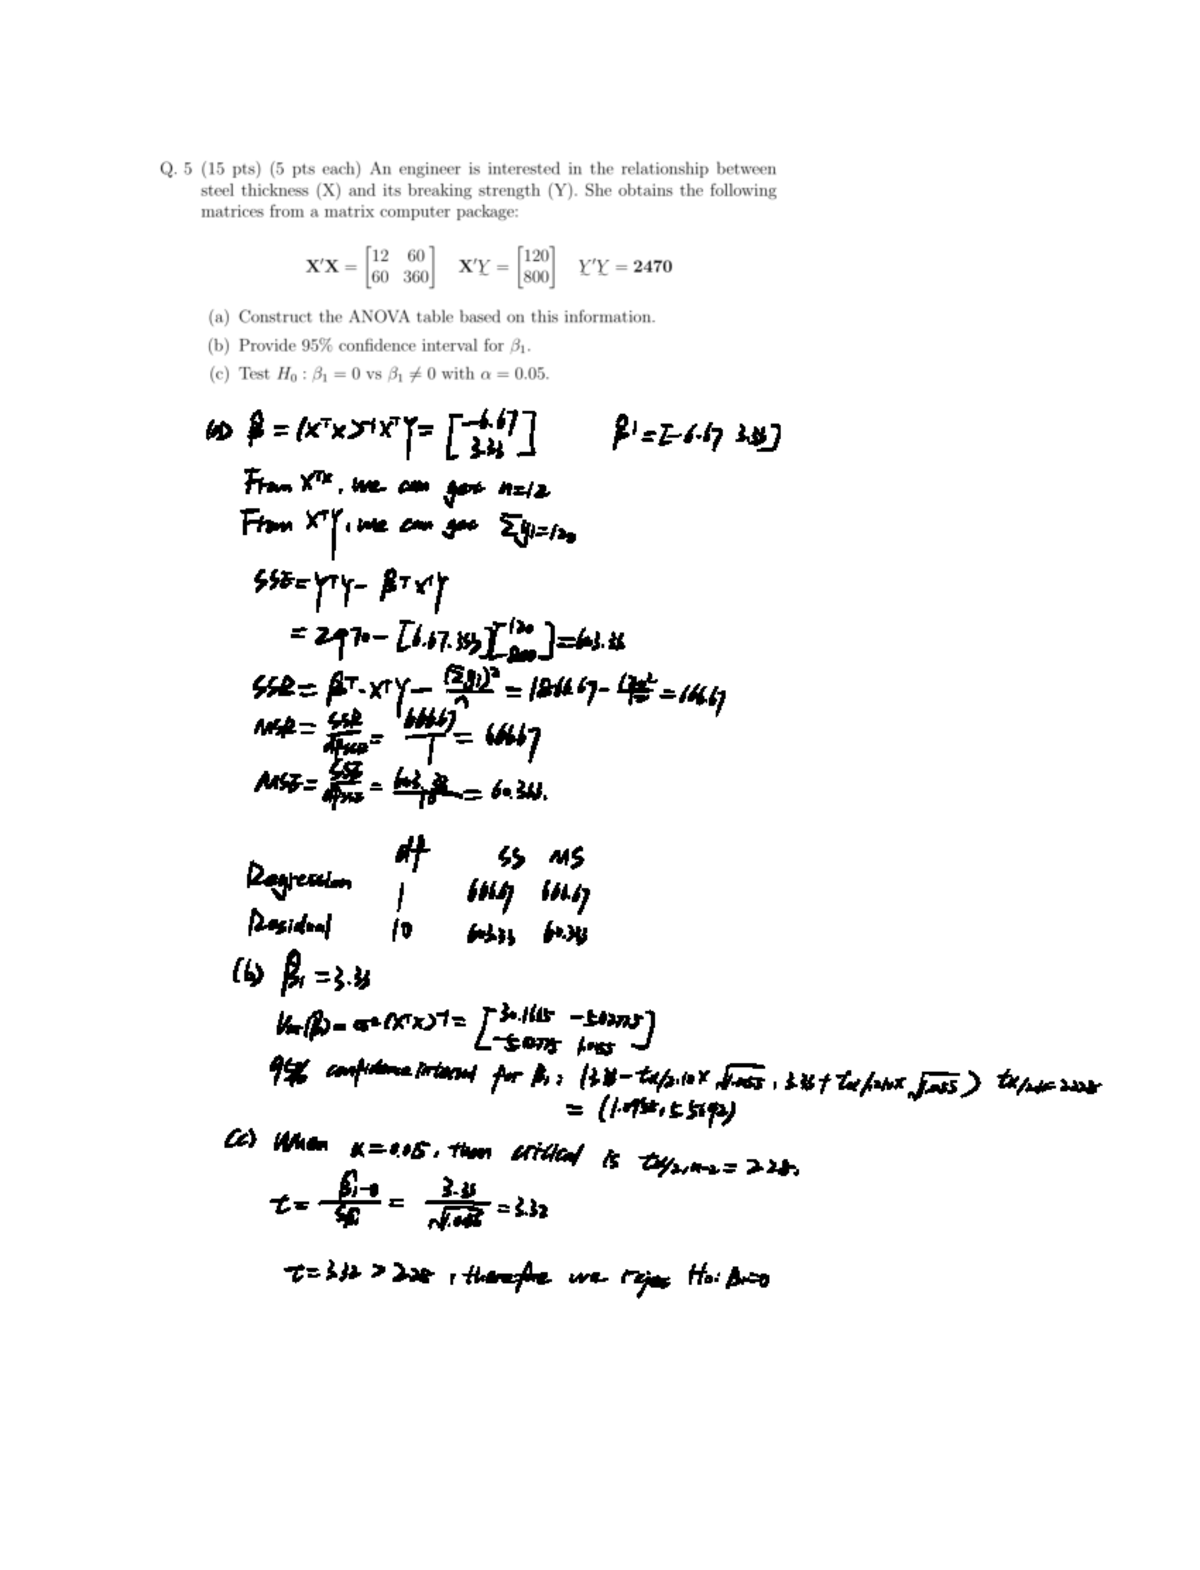 Q. 5 (15 pts) (5 pts each) An engineer is interested in the relationship between
steel thickness (X) and its breaking strength (Y). She obtains the following
matrices from a matrix computer package:
X′X = [12 60; 60 360] X′Y = [120; 800] Y′Y = 2470
(a) Construct the ANOVA table based on this information.
(b) Provide 95% confidence interval for β₁.
(c) Test H₀ : β₁ = 0 vs β₁ ≠ 0 with α = 0.05.
(a) β̂ = (XᵀX)⁻¹XᵀY = [-6.67; 3.33] β̂' = [-6.67 3.33]
From XᵀX, we can get n=12
From XᵀY, we can get Σyi=120
SSE = YᵀY - β̂ᵀX'Y
= 2470 - [6.67. 3.33][120; 800] = 603.33
SSR = β̂ᵀ·XᵀY - (Σyi)²/n = 1866.67 - 120²/12 = 666.67
MSR = SSR/dfSSR = 666.67/1 = 666.67
MSE = SSE/dfSSE = 603.33/10 = 60.333.
df SS MS
Regression 1 666.67 666.67
Residual 10 603.33 60.333
(b) β̂₁ = 3.33
Var(β̂) = σ²(XᵀX)⁻¹ =
95% confidence interval for β₁:
(c) When α = 0.05, then critical is tα/2,n-2 = 2.228.
t = = 3.32
t = 3.32 > 2.228, therefore we reject H₀: β₁=0